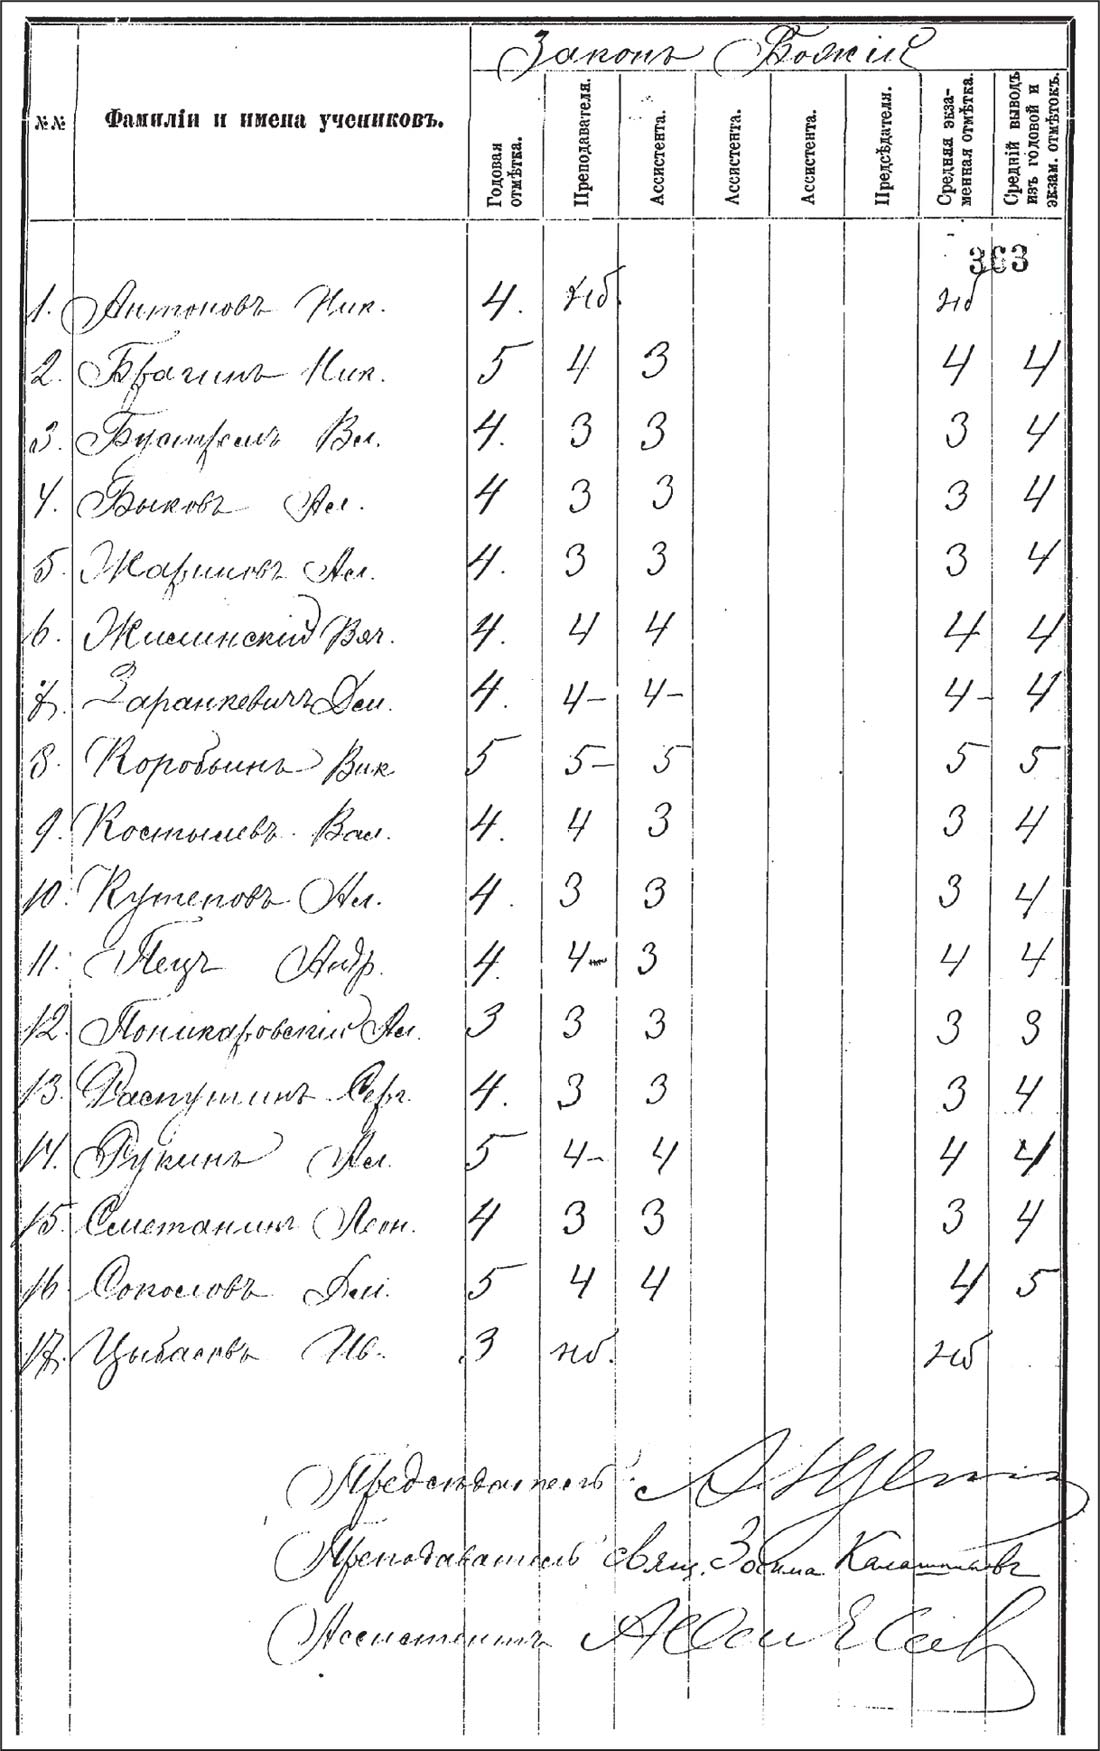 Законъ Божій
№№ Фамиліи и имена учениковъ. Годовая отмѣтка. Преподавателя. Ассистента. Ассистента. Ассистента. Предсѣдателя. Средняя экзаменная отмѣтка. Средній выводъ изъ годовой и экзам. отмѣтокъ.
363
1. Антоновъ Ник. 4. нб. нб
2. Брагинъ Ник. 5 4 3 4 4
3. Бустремъ Вл. 4. 3 3 3 4
4. Быковъ Ал. 4 3 3 3 4
5. Жариновъ Ал. 4. 3 3 3 4
6. Жилинскій Вяч. 4. 4 4 4 4
7. Заранкевичъ Дм. 4. 4- 4- 4- 4
8. Коробьинъ Вик 5 5- 5 5 5
9. Костылевъ Вал. 4. 4 3 3 4
10. Кутеповъ Ал. 4. 3 3 3 4
11. Пецъ Андр. 4. 4- 3 4 4
12. Поникаровскій Ал. 3 3 3 3 3
13. Распутинъ Серг. 4. 3 3 3 4
14. Рукинъ Ал. 5 4- 4 4 4
15. Сметанинъ Леон. 4 3 3 3 4
16 Соколовъ Дм. 5 4 4 4 5
17. Цыбасовъ Ив. 3 нб. нб
Предсѣдатель
Преподаватель свящ. Зосима Калашниковъ
Ассистентъ